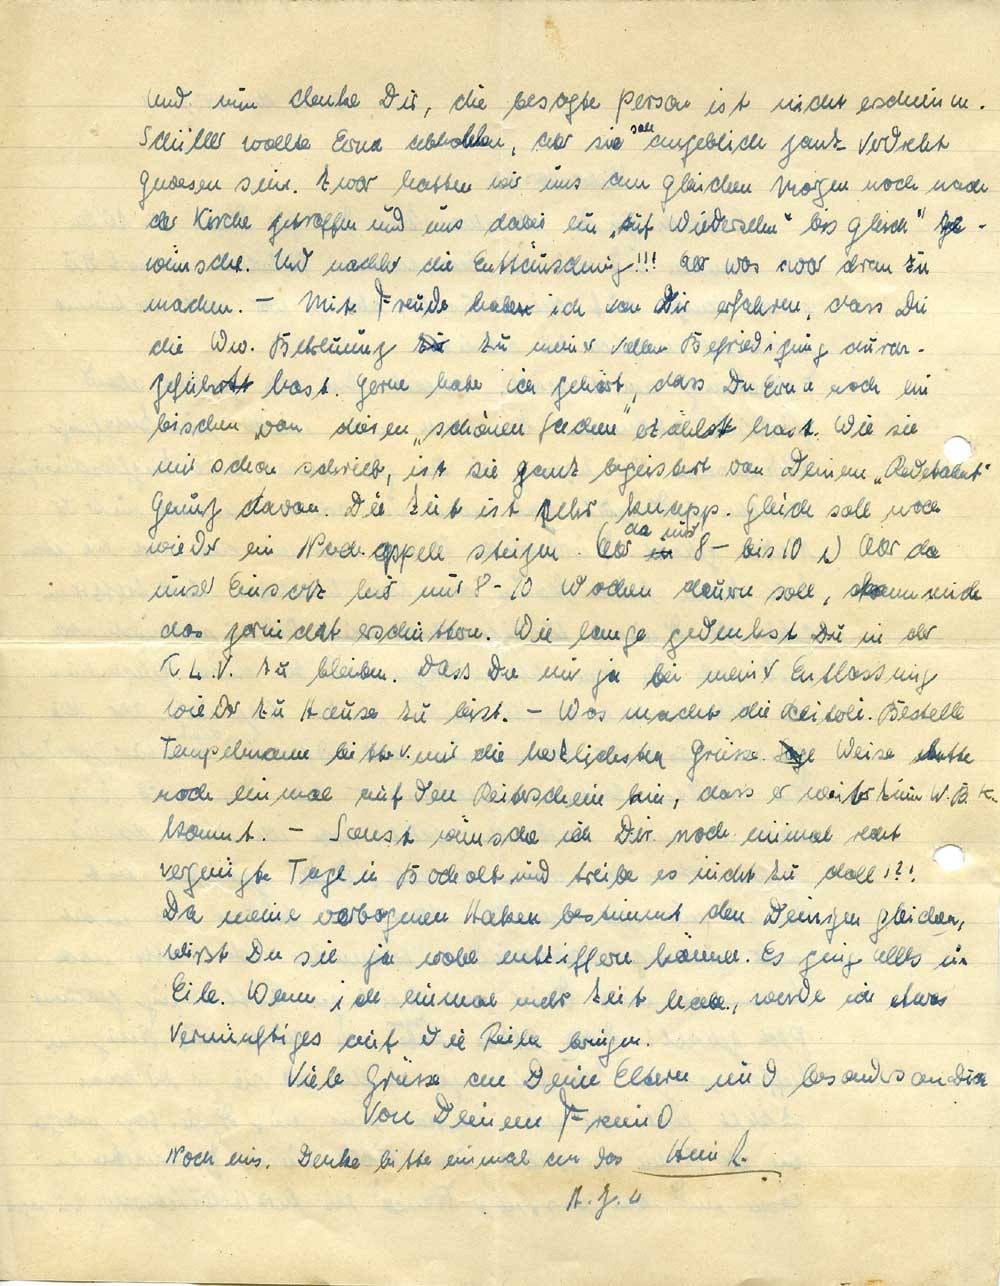 Und nun denke Dir, die besagte Person ist nicht erschienen.
Schüller wollte Erna abholen, aber sie soll angeblich ganz verdreht
gewesen sein. Zwar hatten wir uns am gleichen Morgen noch nach
der Kirche getroffen und uns dabei ein „auf Wiedersehen" bis gleich" ge-
wünscht. Und nachher die Enttäuschung!!! Aber was war dran zu
machen. – Mit Freude habe ich von Dir erfahren, dass Du
die Betreuung zu meiner vollen Befriedigung durch-
geführt hast. Gerne habe ich gehört, dass Du Erna noch ein
bischen von diesen „schönen Sachen" erzählst hast. Wie sie
mir schon schrieb, ist sie ganz begeistert von Deinem „Redetalent"
Genug davon. Die Zeit ist sehr knapp. Gleich soll noch
wieder ein steigen. (Aber da nur 8 – bis 10 ) Aber da
unser Einsatz hier nur 8 – 10 Wochen dauern soll, kann mich
das gar nicht erschüttern. Wie lange gedenkst Du in der
K.L.V. zu bleiben. Dass Du mir ja bei meiner Entlassung
wieder zu Hause zu bist. – Was macht die Bestelle
Tempelmann bitte v. mir die herzlichsten Grüsse. Weise bitte
noch einmal auf den Reiterschein hin, dass er weiter zum W.B.K.
kommt. – Sonst wünsche ich Dir noch einmal recht
vergnügte Tage in Bocholt und treibe es nicht zu doll!?!
Da meine verbogenen Haken bestimmt den Deinigen gleichen,
wirst Du sie ja wohl entziffern können. Es ging alles in
Eile. Wenn ich einmal mehr Zeit habe, werde ich etwas
Vernünftiges auf die Reihe bringen.
Viele Grüsse an Deine Eltern und besonders an Dich
von Deinem Freund
Noch eins. Denke bitte einmal an das